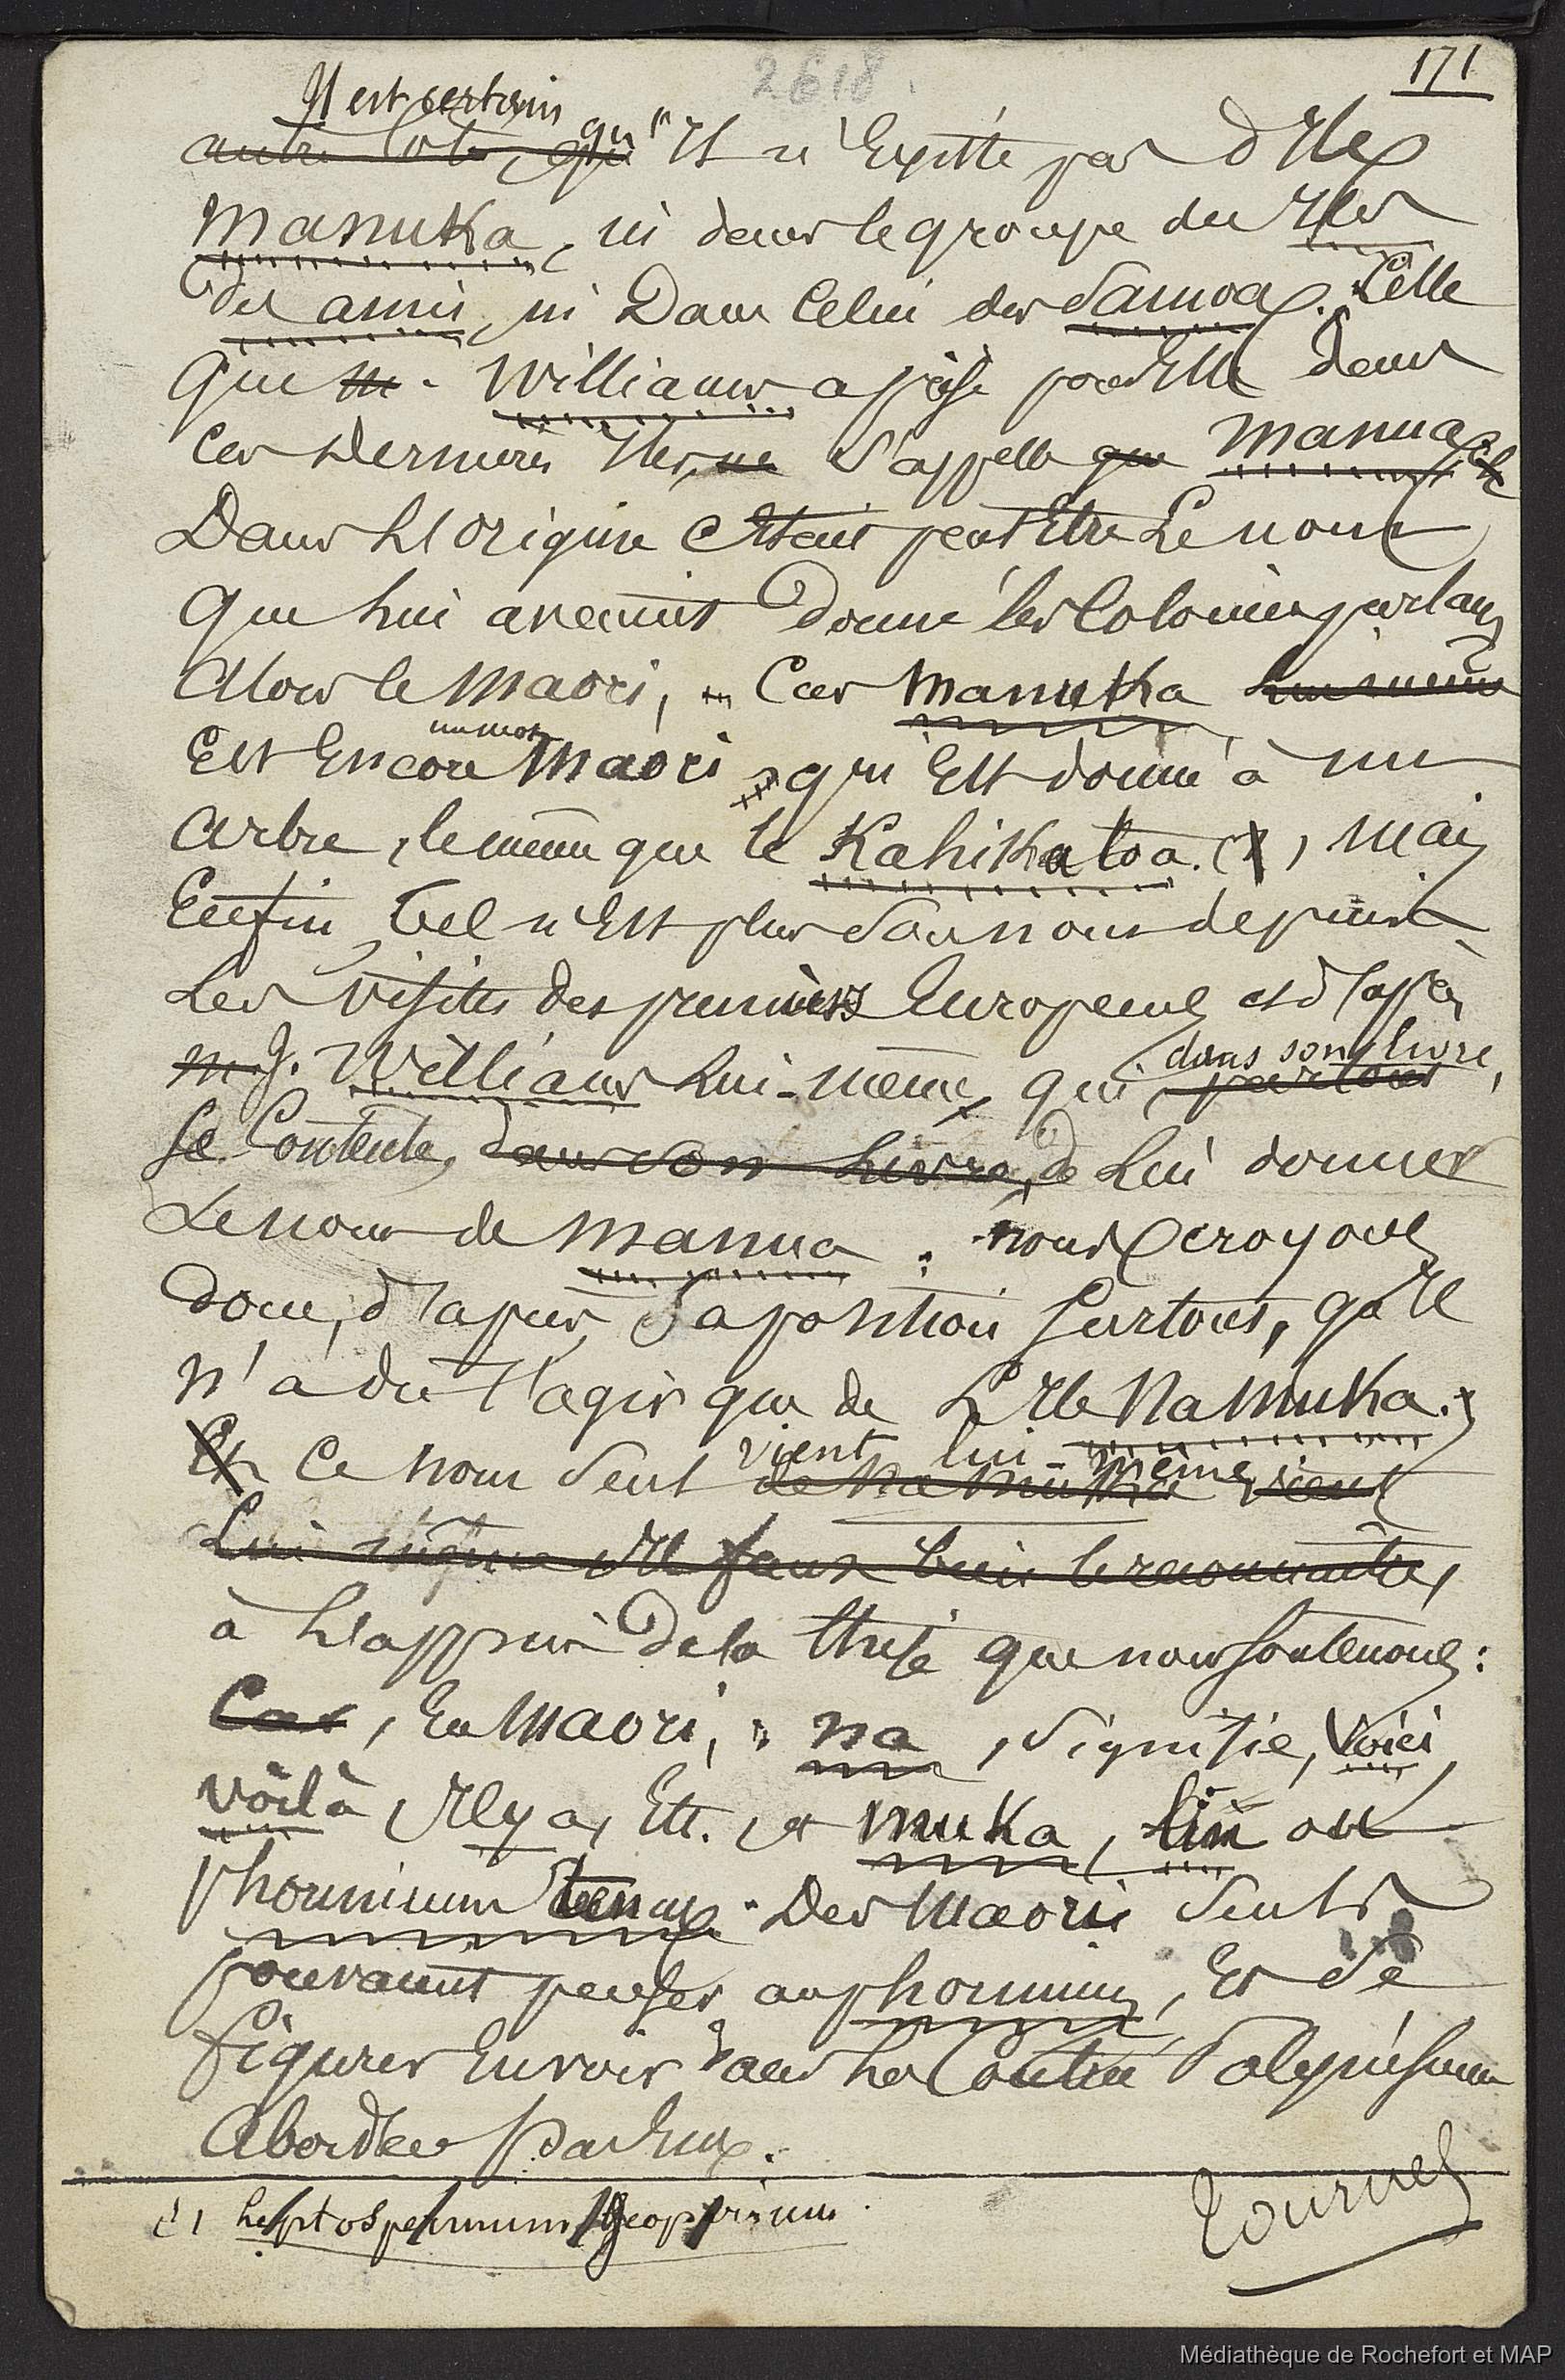 171
2618.
Il est certain qu'
autre côté, qu' Il n'Existe pas d'Iles
Manuka, ni dans le groupe des Iles
des amis, ni Dans Celui des Samoa. Celle
que M. Williams a prise pour Elle dans
Ces Dernières Iles, ne S'appelle que Manua, et
Dans L'origine C'était peut Etre Le nom
que Lui avaient Donné les Colonies parlant
Alors le Maori, Car Manuka lui même
Est Encore un mot Maori, qui Est donné à un
Arbre, le même que le Kahikatoa (1), mais
Enfin, tel n'Est plus Son nom depuis
Les visites des premiers Européens et d'après
M. J. Williams Lui-même, qui partout dans son livre,
Se Contente, dans son Livre, de Lui donner
Le nom de Manua. nous Croyons
donc, d'après Sa position Surtout, qu'Il
n'a dû S'agir que de L'Ile Namuka.
Et Ce nom Seul de Namuka vient vient lui-même,
Lui même Il faut bien le reconnaître,
à L'appui de la thèse que nous Soutenons:
Car, En Maori, na, Signifie, Voici,
Voilà, Il y a, Etc. et muka, lin ou
phormium tenax. Des Maori Seuls
pouvaient penser au phormium, Et Se
figurer En voir dans Les Contrées Polynésiennes
Abordées Par Eux.
(1 Leptospermum Scoparium
Tournez
Médiathèque de Rochefort et MAP